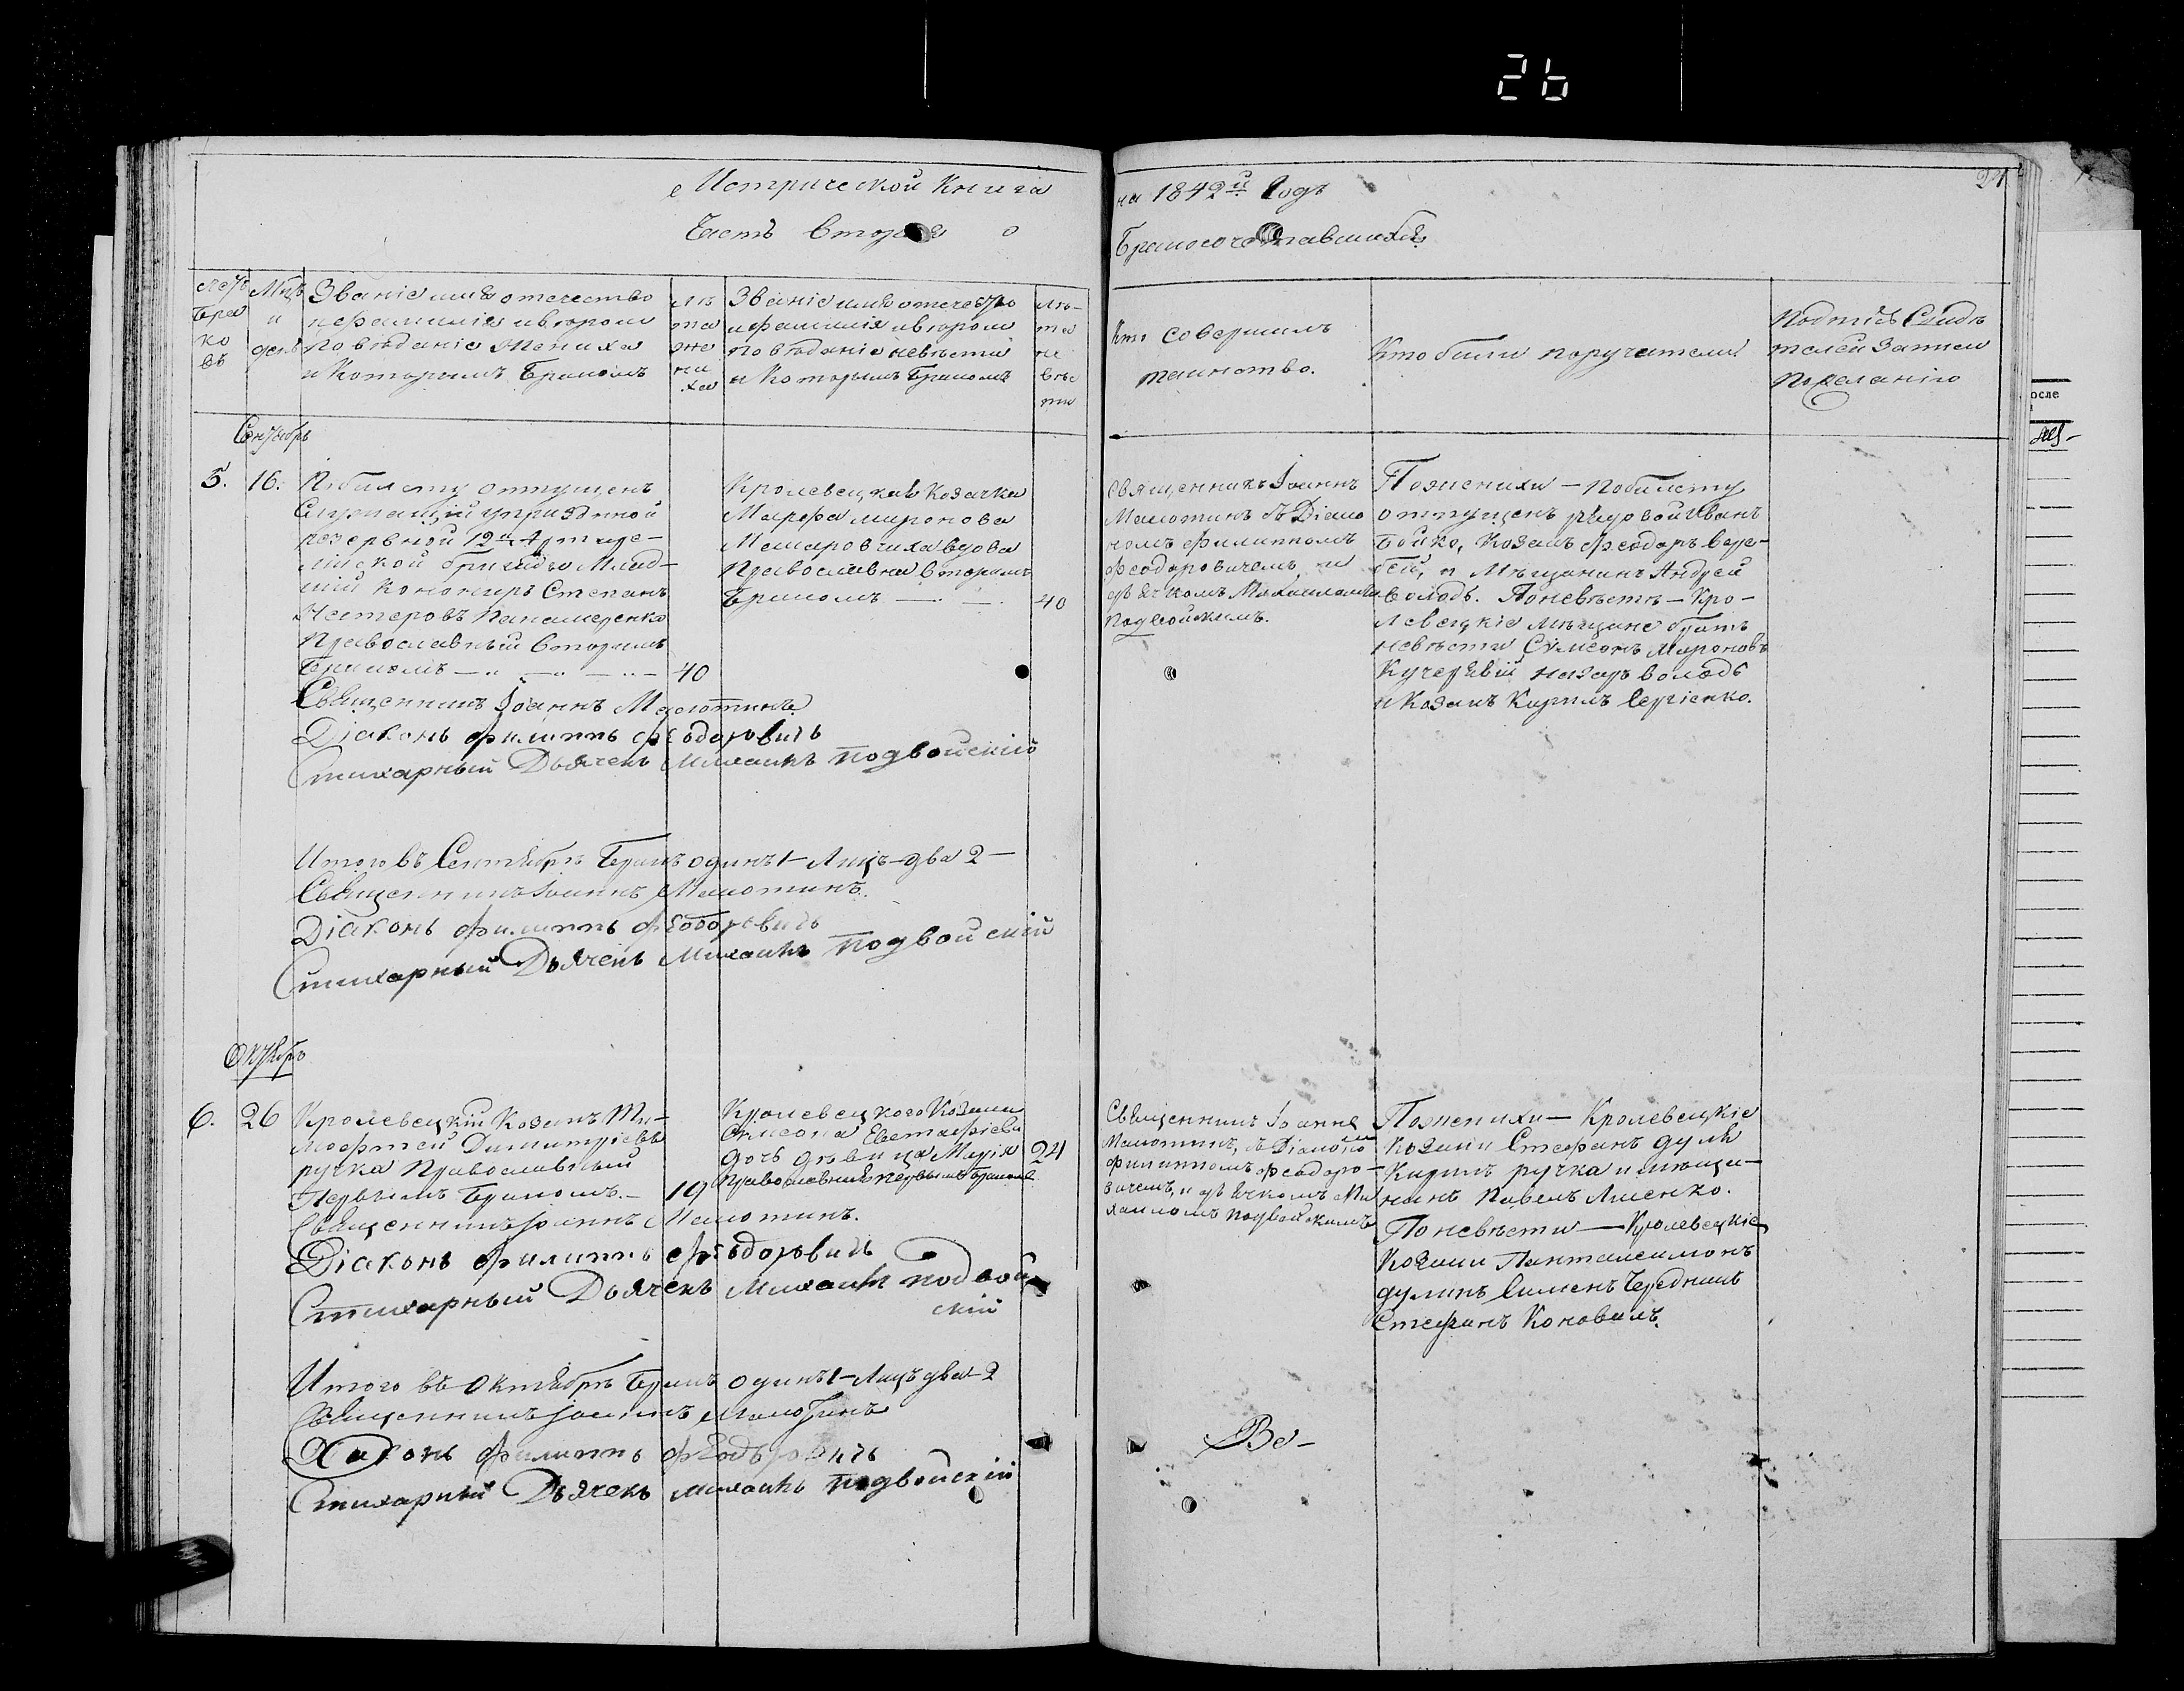 26
Метрической Книги
Часть Вторая
на 1842й Годъ
24
Бракосочетавшихся
Бра
ко
въ
и
день
Званіе имя отечество
и фамилія и вѣроис
повѣданіе жениха
и Которымъ Бракомъ
лѣ
та
же
ни
ха
Званіе имя отечество
и фамилія и вѣроис
повѣданіе невѣсты
и Которымъ Бракомъ
лѣ-
та
не
вѣс
ты
Кто Совершилъ
таинство.
Кто были поручители
Подпись Свидѣ
телей Записи
по желанію
Сентябрь
5.
16.
По билету отпущенъ
резервной 12й Артиле-
лійской бригады Млад-
шій Конониръ Степанъ
Нестеровъ
Православный Вторымъ
Бракомъ
40
Козачка
Марфа Миронова
вдова
Православна Вторымъ
Бракомъ
40
Священникъ Іоаннъ
съ Діако
номъ Филиппомъ
Феодоровичемъ и
дьячкомъ Михаиломъ
Подвойскимъ.
По женихи — по билету
отпущенъ рядовой Иванъ
Бойко, Козакъ Феодоръ Воро-
бей, и Мѣщанинъ Андрей
Володь. По невѣстѣ — Кро-
левецкіе мѣщане братъ
невѣсты Сѵмеонъ Мироновъ
Кучерявій Назаръ Володь
и Козакъ Кирилъ Сергіенко.
Священникъ Іоаннъ
Діаконъ Филиппъ Феодоровичь
Стихарный Дьячекъ Михаилъ Подвойскій
Итого въ Сентябрѣ Бракъ одинъ 1 — Лицъ — два 2 —
Священникъ Іоаннъ
Діаконъ Филиппъ Феодоровичь
Стихарный Дьячекъ Михаилъ Подвойскій
Октябрь
6.
26
Кролевецкій Козакъ Ти-
мофтей Димитріевъ
ручка Православный
Первымъ Бракомъ. —
19
Кролевецкого Козака
Сѵмеона Евстафіева
дочь дѣвица Марія
Православная первымъ бракомъ
21
Священникъ Іоаннъ
съ Діакономъ
Филиппомъ Феодоро-
вичемъ, и дьячкомъ Ми
хаиломъ Подвойскимъ
По женихи — Кролевецкіе
Козаки Стефанъ
Кирилъ ручка и мѣща-
нинъ Павелъ
По невѣсти — Кролевецкіе
Козаки Пантелеимонъ
Сименъ Чередникъ
Стефанъ Коновалъ.
Священникъ Іоаннъ
Діаконъ Филиппъ Феодоровичь
Стихарный Дьячекъ Михаилъ Подвой
скій
Итого въ Октябрѣ Бракъ одинъ 1 — Лицъ два — 2
Священникъ Іоаннъ
Діаконъ Филиппъ Феодоровичь
Стихарный Дьячекъ Михаилъ Подвойскій